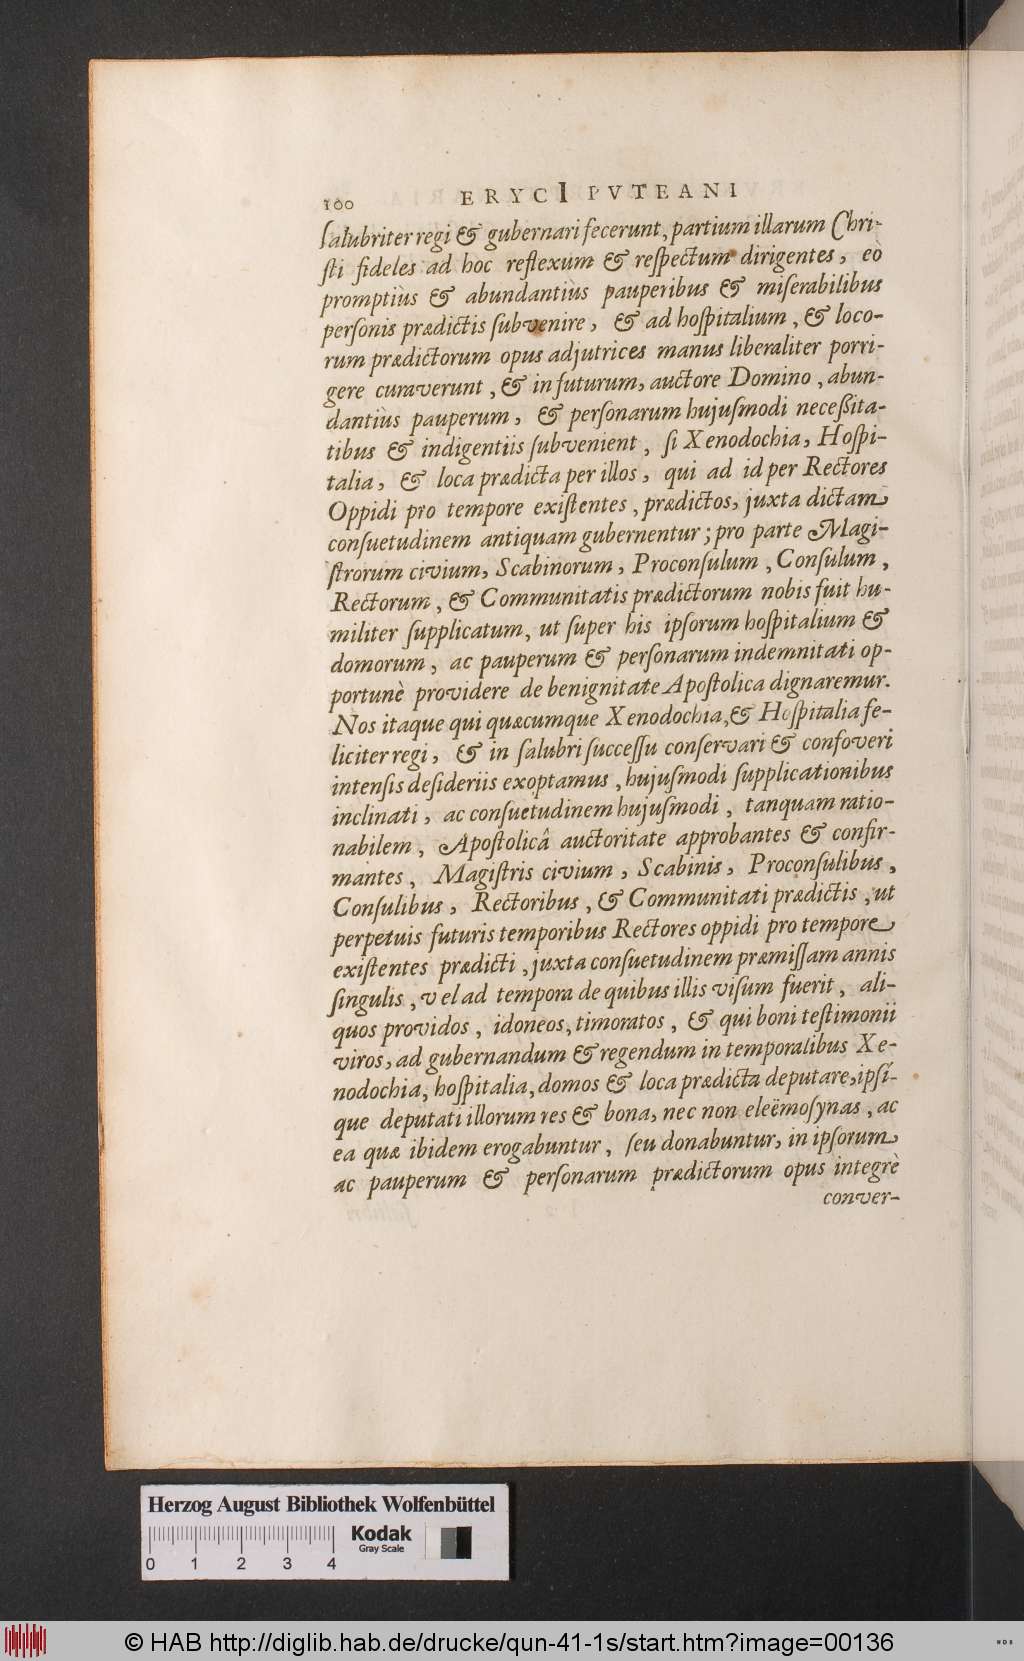 100 ERYCI PVTEANI
ſalubriter regi & gubernari fecerunt, partium illarum Chri-
ſti fideles ad hoc reflexum & reſpectum dirigentes, eò
promptiùs & abundantiùs pauperibus & miſerabilibus
perſonis prædictis ſubvenire, & ad hoſpitalium, & loco-
rum prædictorum opus adjutrices manus liberaliter porri-
gere curaverunt, & in futurum, auctore Domino, abun-
dantiùs pauperum, & perſonarum hujuſmodi neceßita-
tibus & indigentiis ſubvenient, ſi Xenodochia, Hoſpi-
talia, & loca prædicta per illos, qui ad id per Rectores
Oppidi pro tempore exiſtentes, prædictos, juxta dictam
conſuetudinem antiquam gubernentur; pro parte Magi-
ſtrorum civium, Scabinorum, Proconſulum, Conſulum,
Rectorum, & Communitatis prædictorum nobis fuit hu-
militer ſupplicatum, ut ſuper his ipſorum hoſpitalium &
domorum, ac pauperum & perſonarum indemnitati op-
portunè providere de benignitate Apoſtolica dignaremur.
Nos itaque qui quæcumque Xenodochia, & Hoſpitalia fe-
liciter regi, & in ſalubri ſucceſſu conſervari & confoveri
intenſis deſideriis exoptamus, hujuſmodi ſupplicationibus
inclinati, ac conſuetudinem hujuſmodi, tanquam ratio-
nabilem, Apoſtolicâ auctoritate approbantes & confir-
mantes, Magiſtris civium, Scabinis, Proconſulibus,
Conſulibus, Rectoribus, & Communitati prædictis, ut
perpetuis futuris temporibus Rectores oppidi pro tempore
exiſtentes prædicti, juxta conſuetudinem præmiſſam annis
ſingulis, vel ad tempora de quibus illis viſum fuerit, ali-
quos providos, idoneos, timoratos, & qui boni teſtimonii
viros, ad gubernandum & regendum in temporalibus Xe-
nodochia, hoſpitalia, domos & loca prædicta deputare, ipſi-
que deputati illorum res & bona, nec non eleëmoſynas, ac
ea quæ ibidem erogabuntur, ſeu donabuntur, in ipſorum
ac pauperum & perſonarum prædictorum opus integrè
conver-
Herzog August Bibliothek Wolfenbüttel
0 1 2 3 4
Kodak
Gray Scale
© HAB http://diglib.hab.de/drucke/qun-41-1s/start.htm?image=00136